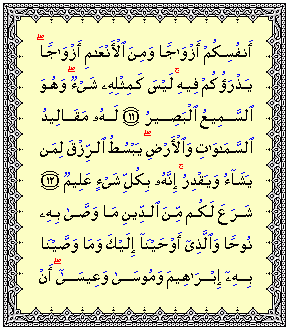 أَنفُسِكُمْ أَزْوَٰجًا وَمِنَ ٱلْأَنْعَٰمِ أَزْوَٰجًا ۖ
يَذْرَؤُكُمْ فِيهِ ۚ لَيْسَ كَمِثْلِهِۦ شَىْءٌ ۖ وَهُوَ
ٱلسَّمِيعُ ٱلْبَصِيرُ ١١ لَهُۥ مَقَالِيدُ
ٱلسَّمَٰوَٰتِ وَٱلْأَرْضِ ۖ يَبْسُطُ ٱلرِّزْقَ لِمَن
يَشَآءُ وَيَقْدِرُ ۚ إِنَّهُۥ بِكُلِّ شَىْءٍ عَلِيمٌ ١٢
شَرَعَ لَكُم مِّنَ ٱلدِّينِ مَا وَصَّىٰ بِهِۦ
نُوحًا وَٱلَّذِىٓ أَوْحَيْنَآ إِلَيْكَ وَمَا وَصَّيْنَا
بِهِۦٓ إِبْرَٰهِيمَ وَمُوسَىٰ وَعِيسَىٰٓ ۖ أَنْ